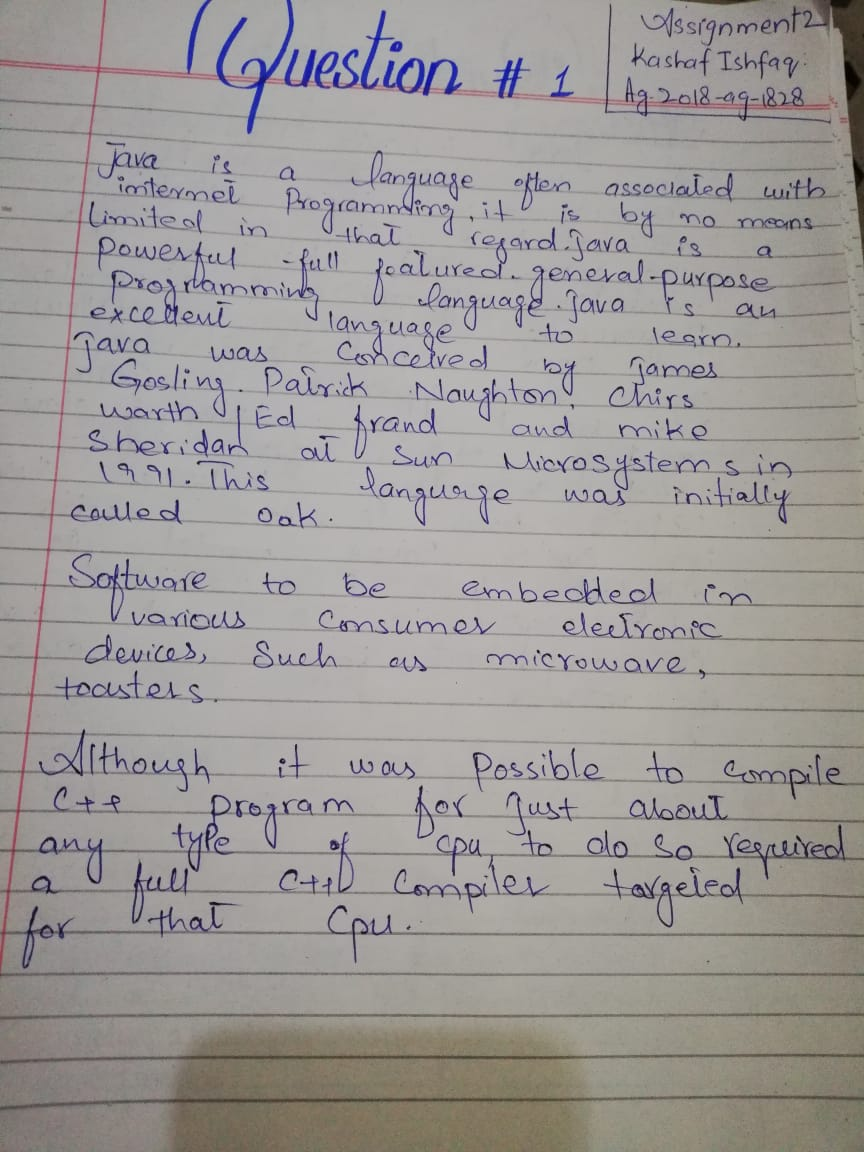 Question # 1
Assignment 2
Kashaf Ishfaq.
Ag-2018-ag-1828
Java is a language often associated with
internet Programmding, it is by no means
limited in that regard. Java is a
powerful -full featured. general-purpose
programming language. Java is an
excellent language to learn.
Java was Conceived by James
Gosling. Patrick Naughton, Chirs
warth, Ed frand and mike
Sheridan at Sun Microsystems in
1991. This language was initially
called Oak.
Software to be embedded in
various Consumer electronic
devices, Such as microwave,
toasters.
Although it was Possible to Compile
C++ program for Just about
any type of cpu, to do so required
a full C++ Compiler targeted
for that Cpu.